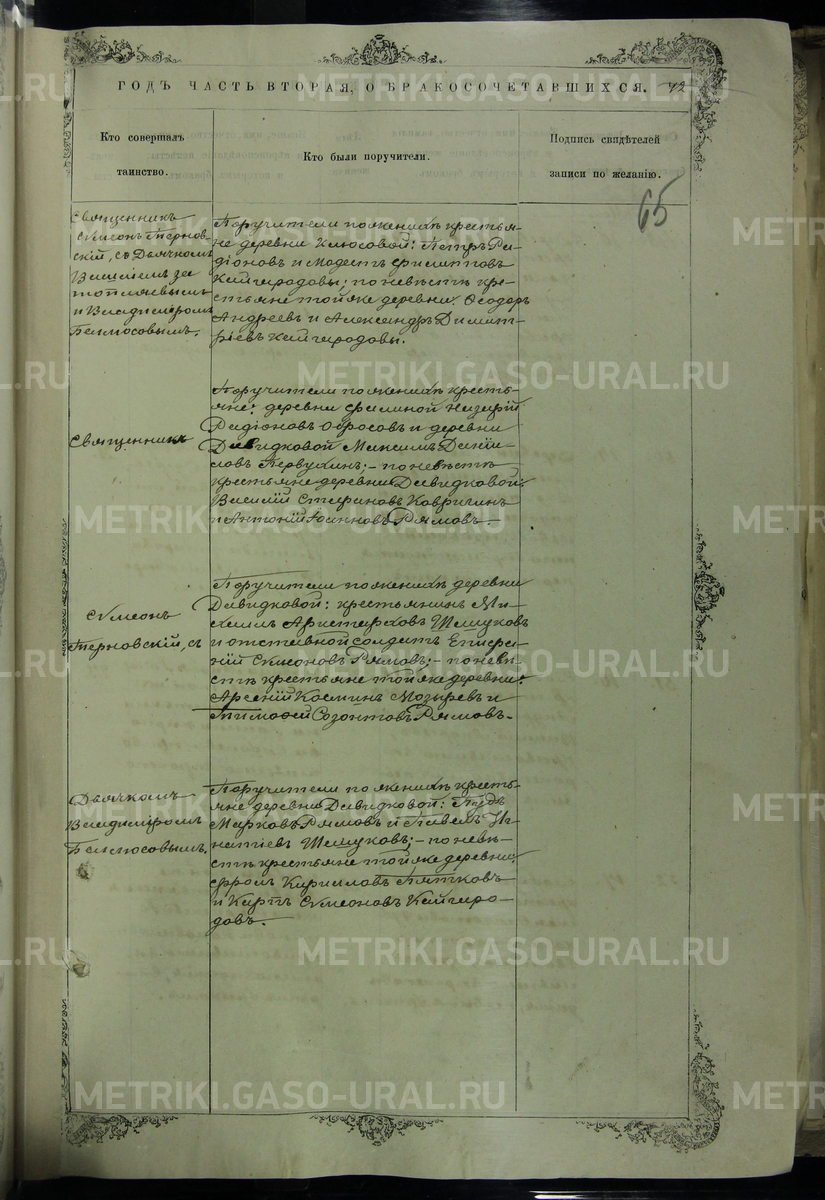 ГОДЪ ЧАСТЬ ВТОРАЯ, О БРАКОСОЧЕТАВШИХСЯ. 42
Кто совершалъ
таинство.
Кто были поручители.
Подпись свидѣтелей
записи по желанію.
65
Священникъ
Сѵмеонъ Терновскій, съ Дьячкомъ
и Владиміромъ
Бѣлоусовымъ.
Поручители по женихѣ крестья-
не деревни Клюсовой: Петръ Ра-
діоновъ и Модестъ Филипповъ
Кайгородовы; по невѣстѣ кре-
стьяне той же деревни: Ѳеодоръ
Андреевъ и Александръ Димит-
ріевъ Кайгородовы.
Священникъ
Поручители по женихѣ кресть-
яне: деревни Филиной Назарій
Радіоновъ и деревни
Давидковой Максимъ Даніи-
ловъ Первухинъ; – по невѣстѣ
крестьяне деревни Давидковой:
Василій Стефановъ
и Антоній Іоанновъ Рямовъ. –
Сѵмеонъ
Терновскій, съ
Поручители по женихѣ деревни
Давидковой: крестьянинъ Ми-
хаилъ Аристарховъ Шешуковъ
и отставной солдатъ Епифа-
ній Сѵмеоновъ Рямовъ; – по невѣ-
стѣ крестьяне той же деревни:
Арсеній Косминъ Мозыревъ и
Тимофей Созонтовъ Рямовъ. –
Дьячкомъ
Владиміромъ
Бѣлоусовымъ.
Поручители по женихѣ кресть-
яне деревни Давидковой: Пудъ
Марковъ Рямовъ и Павелъ Иг-
натіевъ Шешуковъ; – по невѣ-
стѣ крестьяне той же деревни:
Фролъ Кирилловъ Пятковъ
и Карпъ Сѵмеоновъ Кайгоро-
довъ. –
METRIKI.GASO-URAL.RU